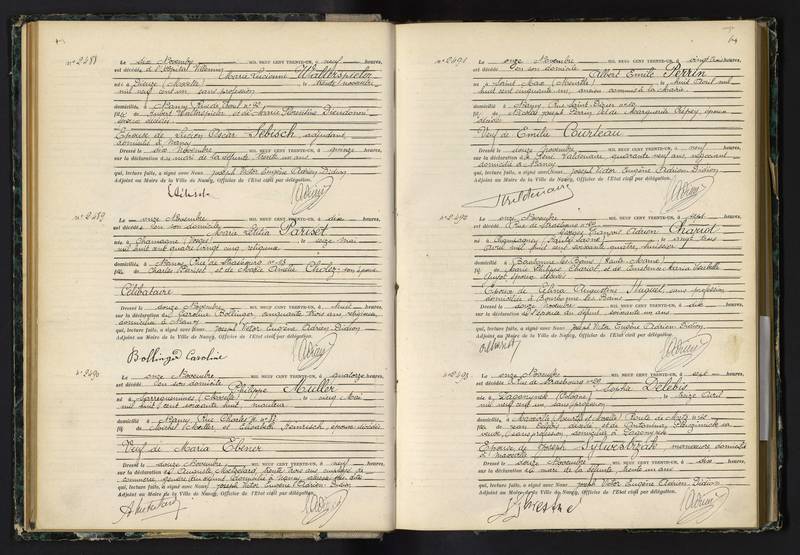 N° 2488
Le dix Novembre MIL NEUF CENT TRENTE-UN, à neuf heures,
est décédée à l'hôpital Villemin Marie Lucienne Walterspieler
née à Dieuze (Moselle) le trente novembre
mil neuf cent un sans profession
domiciliée à Nancy, Rue de
fille de Hubert Walterspieler et de Marie Florentine Dieudonné
époux décédés
Epouse de Lucien Oscar Sebisch, adjudant,
domicilié à Nancy
Dressé le dix Novembre MIL NEUF CENT TRENTE-UN, à quinze heures,
sur la déclaration du mari de la défunte trente un ans
qui, lecture faite, a signé avec Nous Joseph Victor Eugène Adrien Didion
Adjoint au Maire de la Ville de Nancy, Officier de l'Etat civil par délégation.
N° 2489
Le onze Novembre MIL NEUF CENT TRENTE-UN, à dix heures,
est décédée en son domicile Marie Letitia Pariset
née à Chamagne (Vosges) le seize mai
mil huit cent quatre vingt cinq religieuse
domiciliée à Nancy, Rue de Strasbourg n° 13
fille de Charles Pariset, et de Marie Amélie son épouse
Célibataire
Dressé le douze Novembre MIL NEUF CENT TRENTE-UN, à huit heures,
sur la déclaration de Caroline Bollinger, cinquante trois ans religieuse,
domiciliée à Nancy
qui, lecture faite, a signé avec Nous Joseph Victor Eugène Adrien Didion
Adjoint au Maire de la Ville de Nancy, Officier de l'Etat civil par délégation.
Bollinger Caroline
N° 2490
Le onze Novembre MIL NEUF CENT TRENTE-UN, à quatorze heures,
est décédé en son domicile Philippe Muller
né à Sarreguemines (Moselle) le cinq Mai
mil huit cent soixante huit,
domicilié à Nancy, Rue Charles
fils de Michel Muller, et Elisabeth époux décédés
Veuf de Maria Ebener
Dressé le douze Novembre MIL NEUF CENT TRENTE-UN, à neuf heures,
sur la déclaration de Auguste trente trois ans employé de
commerce, gendre du défunt domicilié à Nancy
qui, lecture faite, a signé avec Nous Joseph Victor Eugène Adrien Didion
Adjoint au Maire de la Ville de Nancy, Officier de l'Etat civil par délégation.
N° 2491
Le onze Novembre MIL NEUF CENT TRENTE-UN, à vingt heures,
est décédé en son domicile Albert Emile Perrin
né à Saint Max (Meurthe) le huit Avril mil
huit cent cinquante un, ancien commis à la Mairie
domicilié à Nancy, Rue Saint
fils de Nicolas Joseph Perrin et de Marguerite Crépey, époux
décédés
Veuf de Emilie Courleau
Dressé le douze Novembre MIL NEUF CENT TRENTE-UN, à neuf heures,
sur la déclaration de René Valdenaire quarante neuf ans, négociant
domicilié à Nancy
qui, lecture faite, a signé avec Nous Joseph Victor Eugène Adrien Didion
Adjoint au Maire de la Ville de Nancy, Officier de l'Etat civil par délégation.
N° 2492
Le onze Novembre MIL NEUF CENT TRENTE-UN, à sept heures,
est décédé Rue de Strasbourg Georges François Adrien Chariot
né à Champagney (Haute Saône) le vingt trois
Avril mil huit cent soixante quatre, huissier
domicilié à Bourbonne les Bains (Haute Marne)
fils de Marie Philippe Chariot, et de Constance Maria Isabelle
époux décédés
Epoux de Elina Augustine Huguet, sans profession
domiciliée à Bourbonne les Bains
Dressé le douze Novembre MIL NEUF CENT TRENTE-UN, à dix heures,
sur la déclaration de l'épouse du défunt soixante un ans
qui, lecture faite, a signé avec Nous Joseph Victor Eugène Adrien Didion
Adjoint au Maire de la Ville de Nancy, Officier de l'Etat civil par délégation.
N° 2493
Le onze Novembre MIL NEUF CENT TRENTE-UN, à sept heures,
est décédée Rue de Strasbourg Sophie Delebis
née à (Pologne) le seize Avril
mil neuf cent un, sans profession
domiciliée à Maxéville (Meurthe et Moselle) Route de Metz
fille de Jean décédé et de Antonina
veuve, sans profession, domiciliée à
Epouse de Joseph Sylwestrzak manœuvre domicilié
à Maxéville
Dressé le douze Novembre MIL NEUF CENT TRENTE-UN, à dix heures,
sur la déclaration du mari de la défunte, trente un ans
qui, lecture faite, a signé avec Nous Joseph Victor Eugène Adrien Didion
Adjoint au Maire de la Ville de Nancy, Officier de l'Etat civil par délégation.